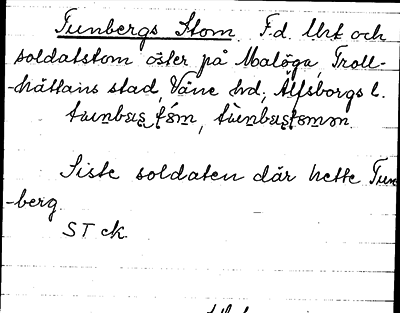 Tunbergs Stom. F.d. lht och
soldatstom öster på Malöga, Troll-
-hättans stad, Väne hd, Älfsborgs l.
Siste soldaten där hette Tun
-berg.
ST ck.